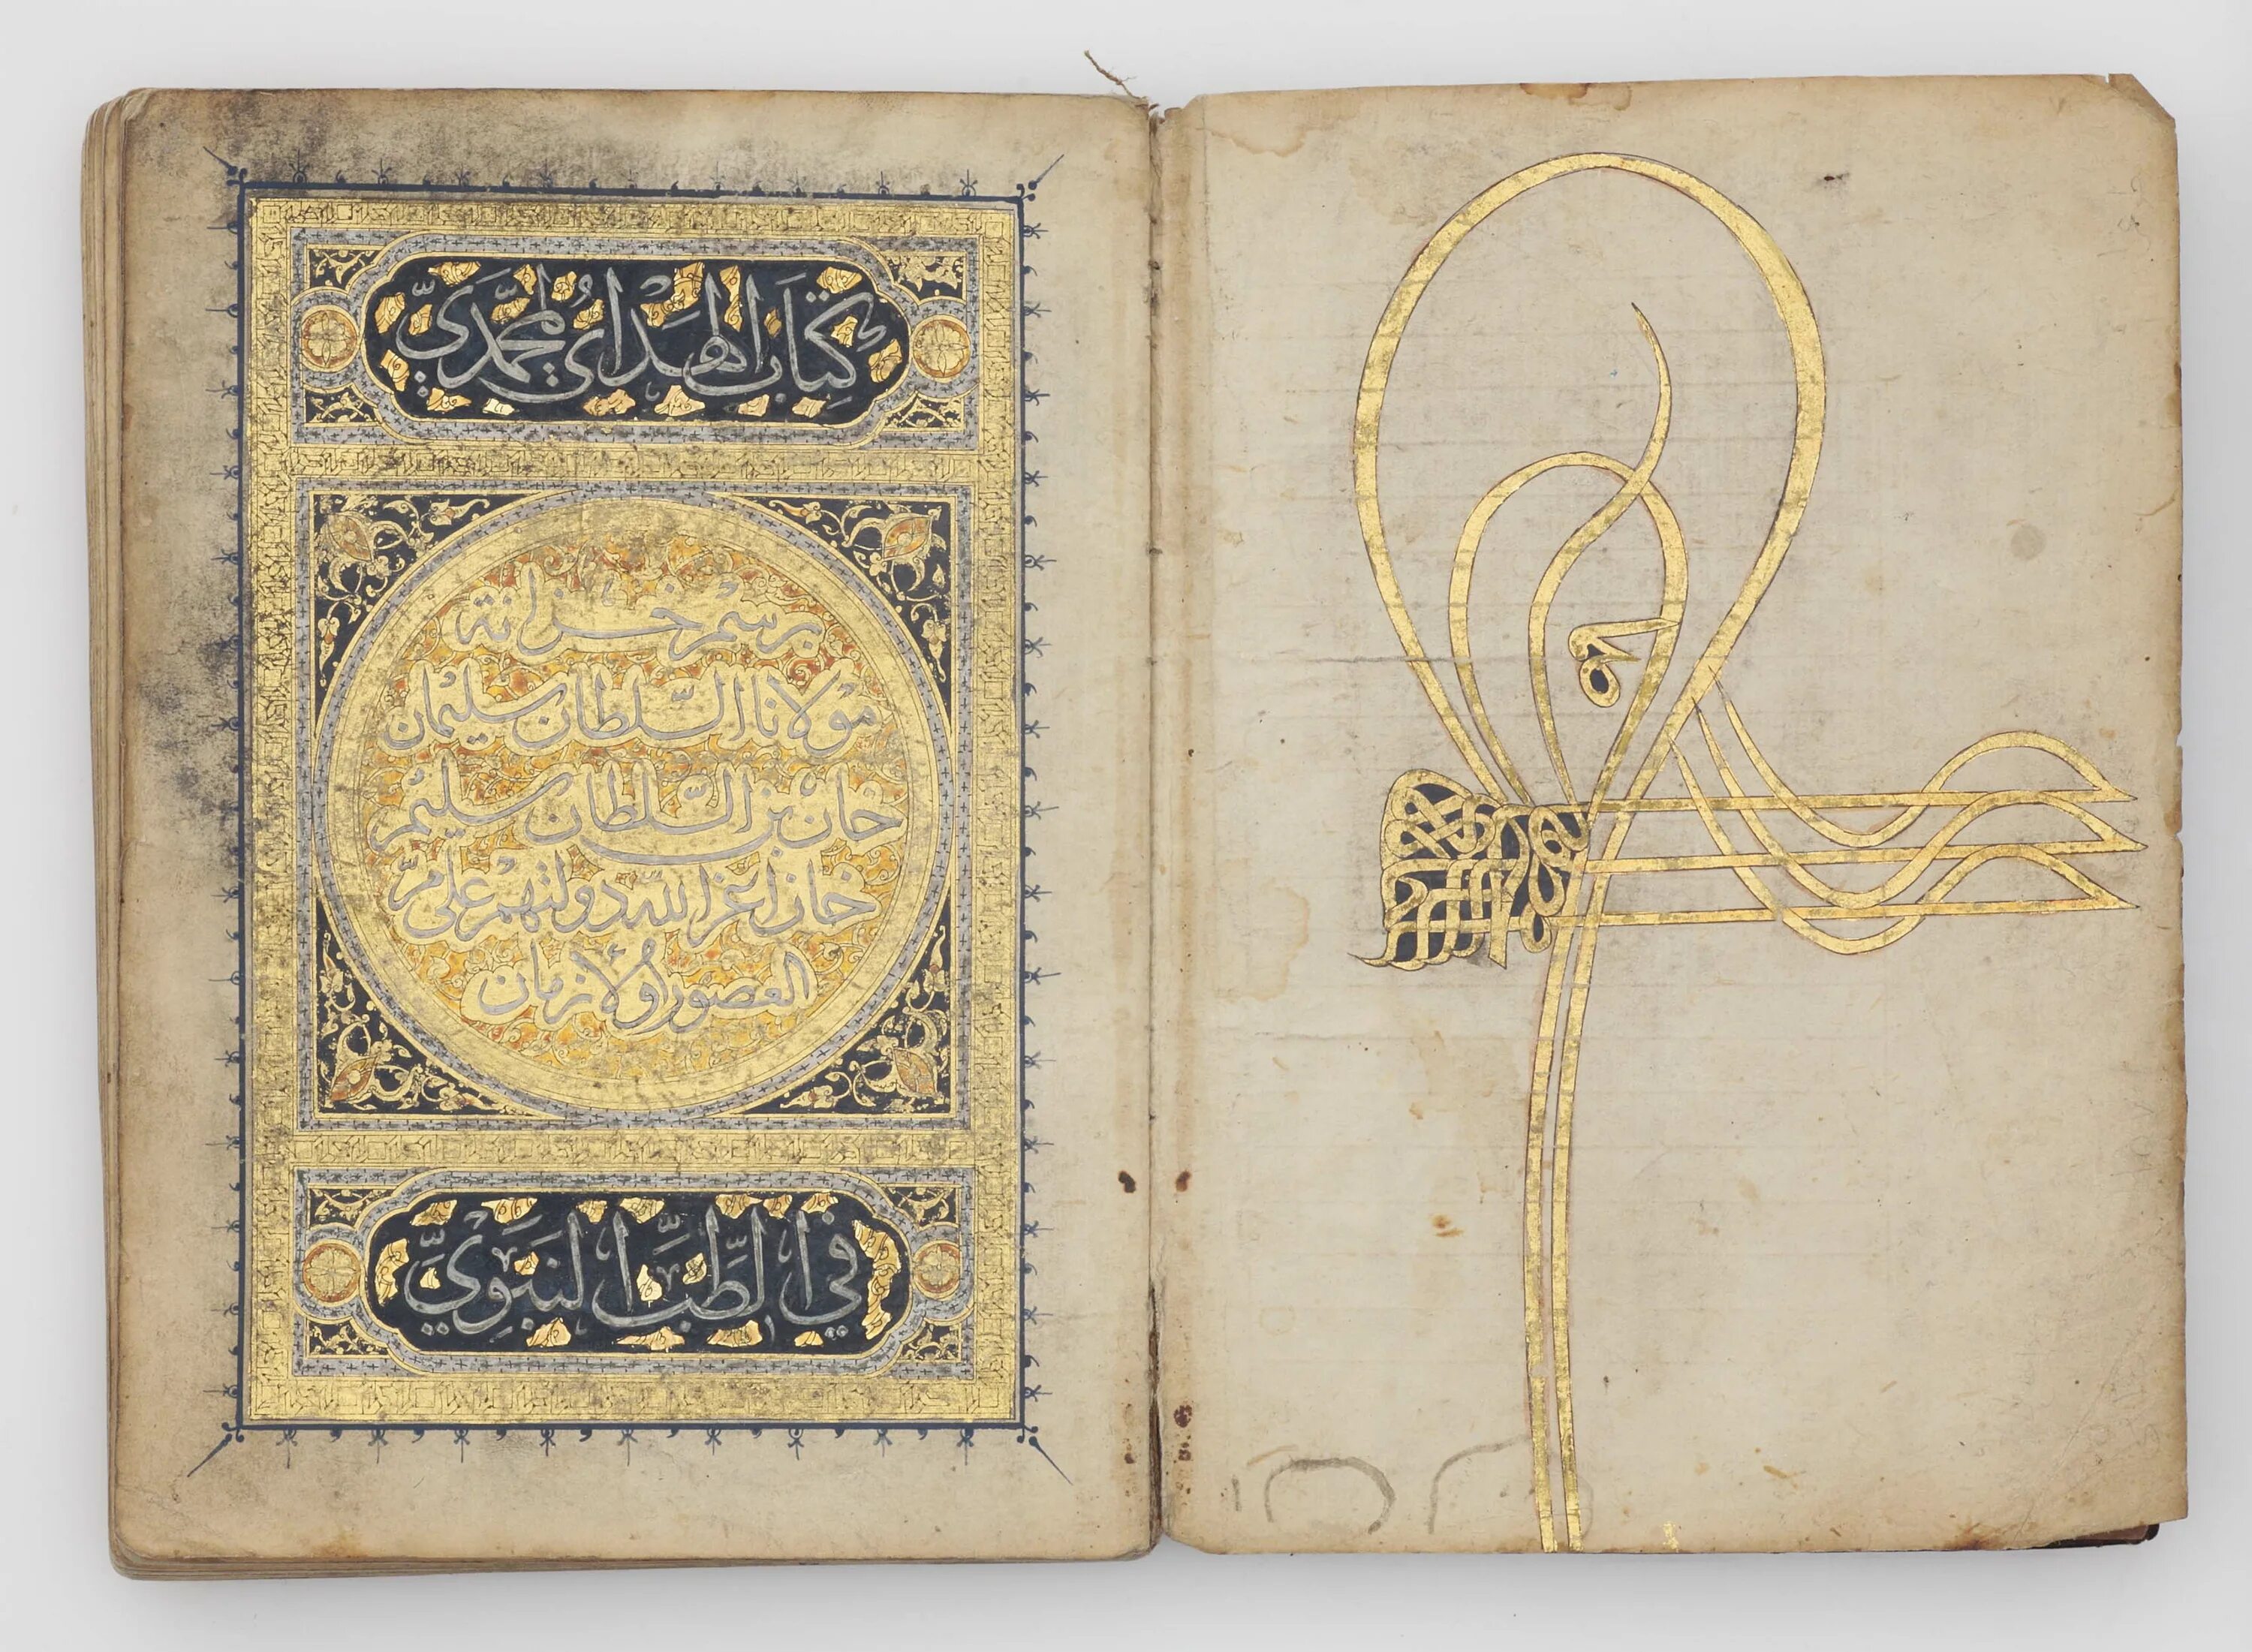 كتاب الهداي المحمّديّ
برسم خزانة
مولانا السّلطان سليمان
خان بن السّلطان سليم
خان اعز الله دولتهم على مرّ
العصور والازمان
في الطّبّ النبويّ